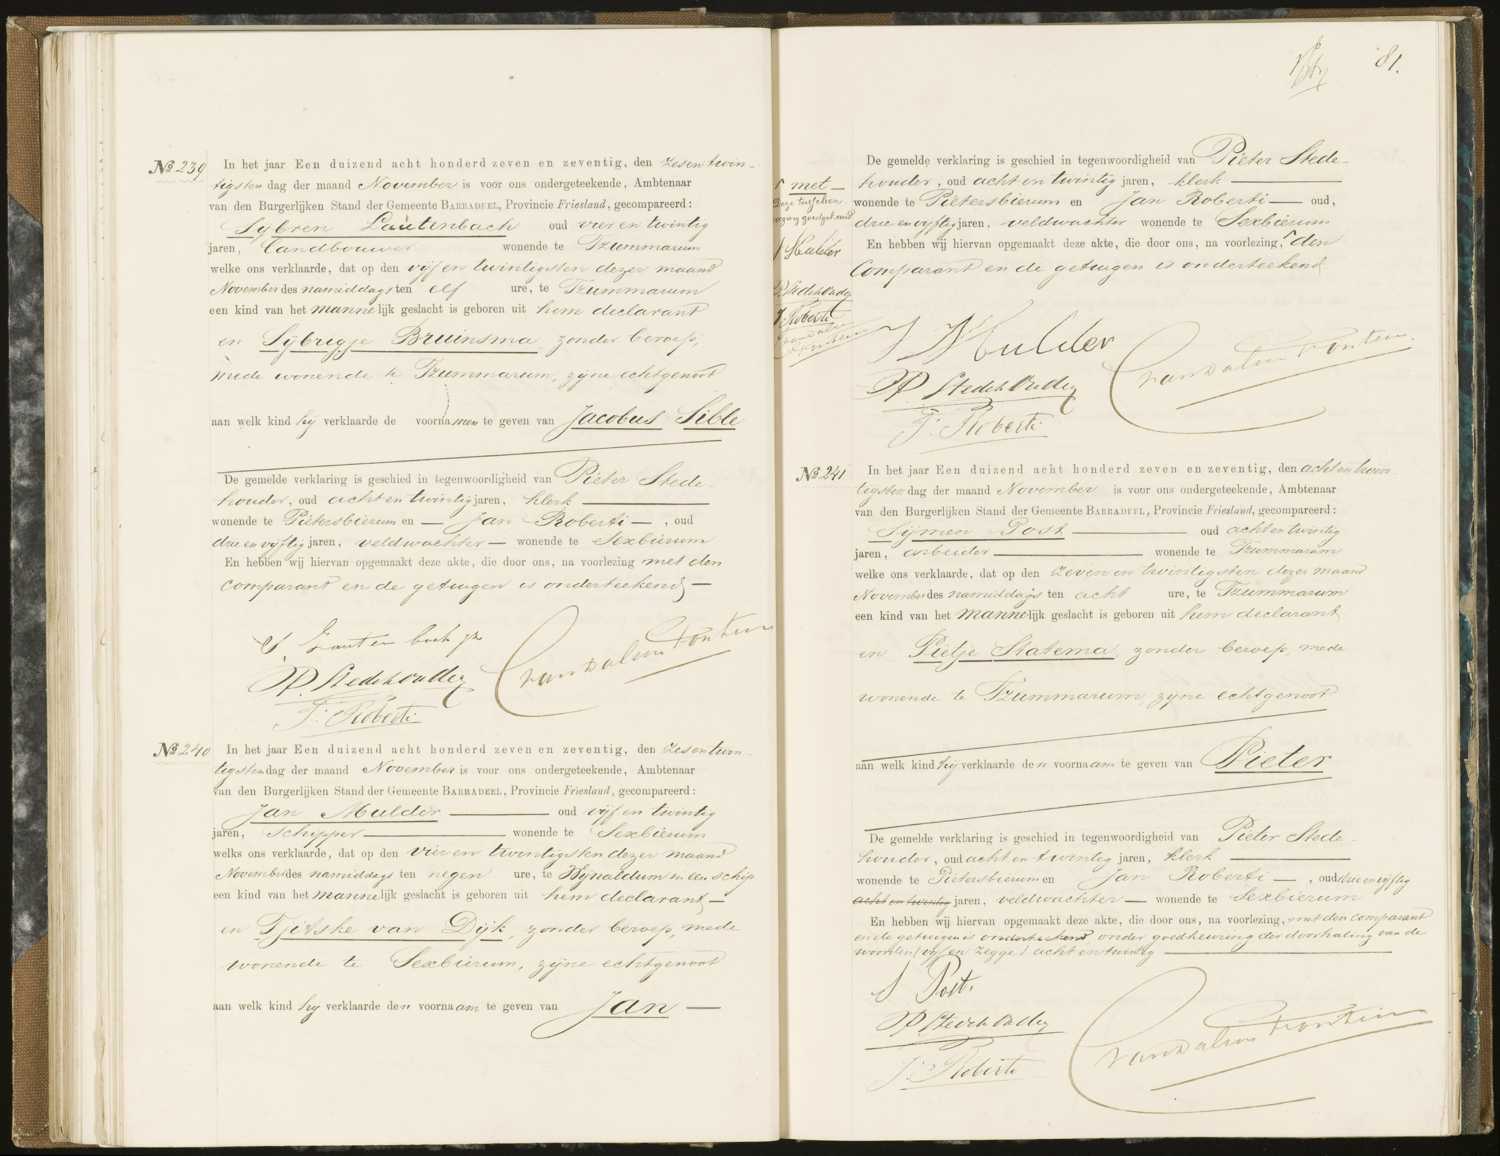 № 239 In het jaar Een duizend acht honderd zeven en zeventig, den zesentwin-
tigsten dag der maand November is voor ons ondergeteekende, Ambtenaar
van den Burgerlijken Stand der Gemeente BARRADEEL, Provincie Friesland, gecompareerd:
Sybren Lautenbach oud vier en twintig
jaren, Landbouwer wonende te Tzummarum
welke ons verklaarde, dat op den vijf en twintigsten dezer maand
November des namiddags ten elf ure, te Tzummarum
een kind van het mannelijk geslacht is geboren uit hem declarant
en Sybrigje Bruinsma, zonder beroep,
mede wonende te Tzummarum, zyne echtgenoot
aan welk kind hy verklaarde de voornamen te geven van Jacobus Sible
De gemelde verklaring is geschied in tegenwoordigheid van Pieter Stede-
houder, oud acht en twintig jaren, klerk
wonende te Pietersbierum en Jan Roberti, oud
drie en vyftig jaren, veldwachter wonende te Sexbierum
En hebben wij hiervan opgemaakt deze akte, die door ons, na voorlezing met den
comparant en de getuigen is onderteekend
S. Lautenbach
P. Stedehouder
J. Roberti
van Dalsen Fontein
№ 240 In het jaar Een duizend acht honderd zeven en zeventig, den zesentwin-
tigsten dag der maand November is voor ons ondergeteekende, Ambtenaar
van den Burgerlijken Stand der Gemeente BARRADEEL, Provincie Friesland, gecompareerd:
Jan Mulder oud vijf en twintig
jaren, Schipper wonende te Sexbierum
welke ons verklaarde, dat op den vier en twintigsten dezer maand
November des namiddags ten negen ure, te Wynaldum in een schip
een kind van het mannelijk geslacht is geboren uit hem declarant
en Tjitske van Dijk, zonder beroep, mede
wonende te Sexbierum, zyne echtgenoot
aan welk kind hy verklaarde den voornaam te geven van Jan
81.
De gemelde verklaring is geschied in tegenwoordigheid van Pieter Stede-
houder, oud acht en twintig jaren, klerk
wonende te Pietersbierum en Jan Roberti oud,
drie en vyftig jaren, veldwachter wonende te Sexbierum
En hebben wij hiervan opgemaakt deze akte, die door ons, na voorlezing, den
comparant en de getuigen is onderteekend
met
Deze tusschen
voeging goedgekeurd
J Mulder
P. Stedehouder
J. Roberti
van Dalsen
Fontein
J Mulder
P Stedehouder
J. Roberti
van Dalsen Fontein
№ 241 In het jaar Een duizend acht honderd zeven en zeventig, den acht en twin-
tigsten dag der maand November is voor ons ondergeteekende, Ambtenaar
van den Burgerlijken Stand der Gemeente BARRADEEL, Provincie Friesland, gecompareerd:
Sijmen Post oud acht en twintig
jaren, arbeider wonende te Tzummarum
welke ons verklaarde, dat op den zeven en twintigsten dezer maand
November des namiddags ten acht ure, te Tzummarum
een kind van het mannelijk geslacht is geboren uit hem declarant
en Pietje Statema, zonder beroep, mede
wonende te Tzummarum, zyne echtgenoot
aan welk kind hy verklaarde den voornaam te geven van Pieter
De gemelde verklaring is geschied in tegenwoordigheid van Pieter Stede-
houder, oud acht en twintig jaren, klerk
wonende te Pietersbierum en Jan Roberti, oud drie en vyftig
acht en twintig jaren, veldwachter wonende te Sexbierum
En hebben wij hiervan opgemaakt deze akte, die door ons, na voorlezing, met den comparant
en de getuigen is onderteekend onder goedkeuring der doorhaling van de
woorden (vijfden zegge) acht en twintig
S Post.
P Stedehouder
J. Roberti
van Dalsen Fontein